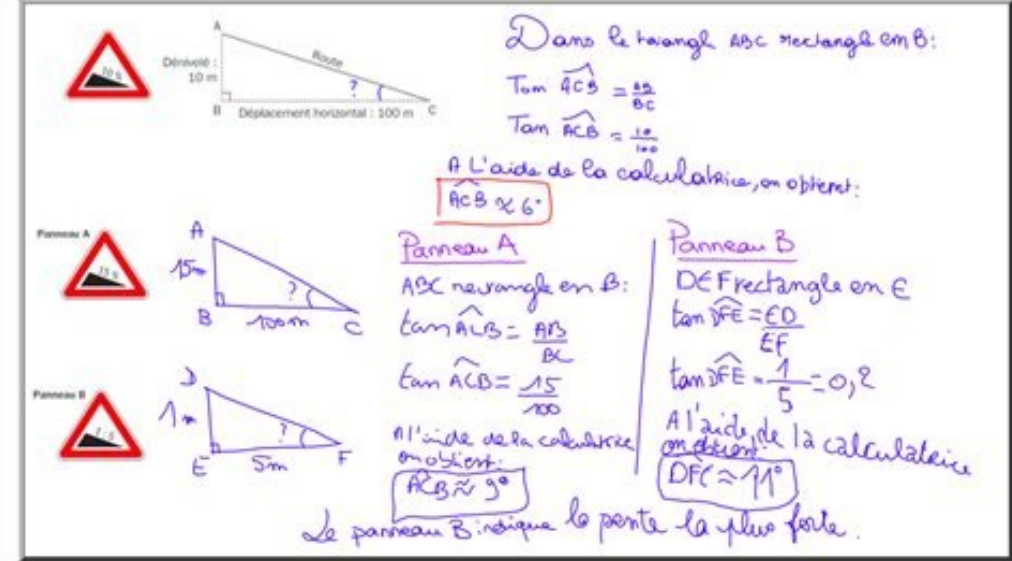 10 %
A
Dénivelé :
10 m
Route
?
B
Déplacement horizontal : 100 m
C
Dans le triangle ABC rectangle em B:
Tam ACB = AB/BC
Tam ACB = 10/100
A L'aide de la calculatrice, on obtient:
ACB ≈ 6°
Panneau A
15 %
A
15m
?
B
100m
C
Panneau A
ABC rectangle en B:
tan ACB = AB/BC
tan ACB = 15/100
A l'aide de la calculatrice
on obtient:
ACB ≈ 9°
Panneau B
1 : 5
D
1m
?
E
5m
F
Panneau B
DEF rectangle en E
tan DFE = ED/EF
tan DFE = 1/5 = 0,2
A l'aide de la calculatrice
on obtient:
DFE ≈ 11°
Le panneau B indique la pente la plus forte.